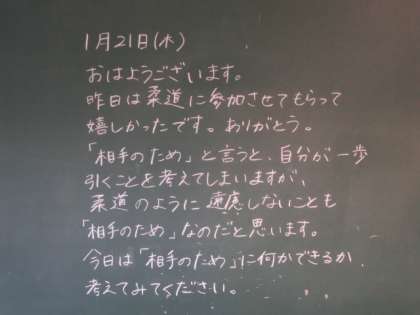 1月21日(木)
おはようございます。
昨日は柔道に参加させてもらって
嬉しかったです。ありがとう。
「相手のため」と言うと、自分が一歩
引くことを考えてしまいますが、
柔道のように遠慮しないことも
「相手のため」なのだと思います。
今日は「相手のため」に何かできるか
考えてみてください。